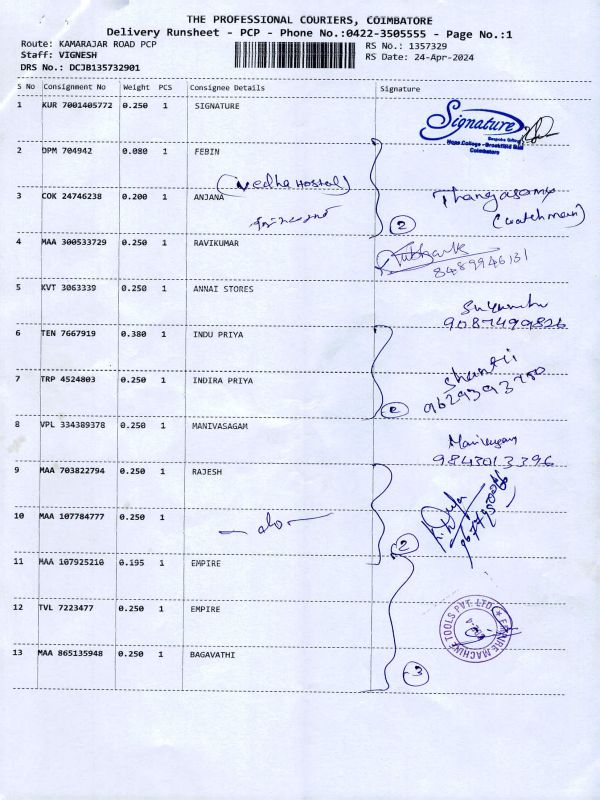 THE PROFESSIONAL COURIERS, COIMBATORE
Delivery Runsheet - PCP - Phone No.:0422-3505555 - Page No.:1
Route: KAMARAJAR ROAD PCP RS No.: 1357329
Staff: VIGNESH RS Date: 24-Apr-2024
DRS No.: DCJB135732901
S No Consignment No Weight PCS Consignee Details Signature
1 KUR 7001405772 0.250 1 SIGNATURE
Signature
Hope College - Brookfield Mall
Coimbatore
2 DPM 704942 0.080 1 FEBIN
(Vedha Hostal)
3 COK 24746238 0.200 1 ANJANA Thangasamy
(watchman)
2
4 MAA 300533729 0.250 1 RAVIKUMAR
8489946131
5 KVT 3063339 0.250 1 ANNAI STORES
9087499826
6 TEN 7667919 0.380 1 INDU PRIYA
7 TRP 4524803 0.250 1 INDIRA PRIYA Shanti
9629393780
2
8 VPL 334389378 0.250 1 MANIVASAGAM
9843013396
9 MAA 703822794 0.250 1 RAJESH
10 MAA 107784777 0.250 1 - do -
2
11 MAA 107925210 0.195 1 EMPIRE
12 TVL 7223477 0.250 1 EMPIRE
MACHINE TOOLS PVT. LTD.
13 MAA 865135948 0.250 1 BAGAVATHI
3